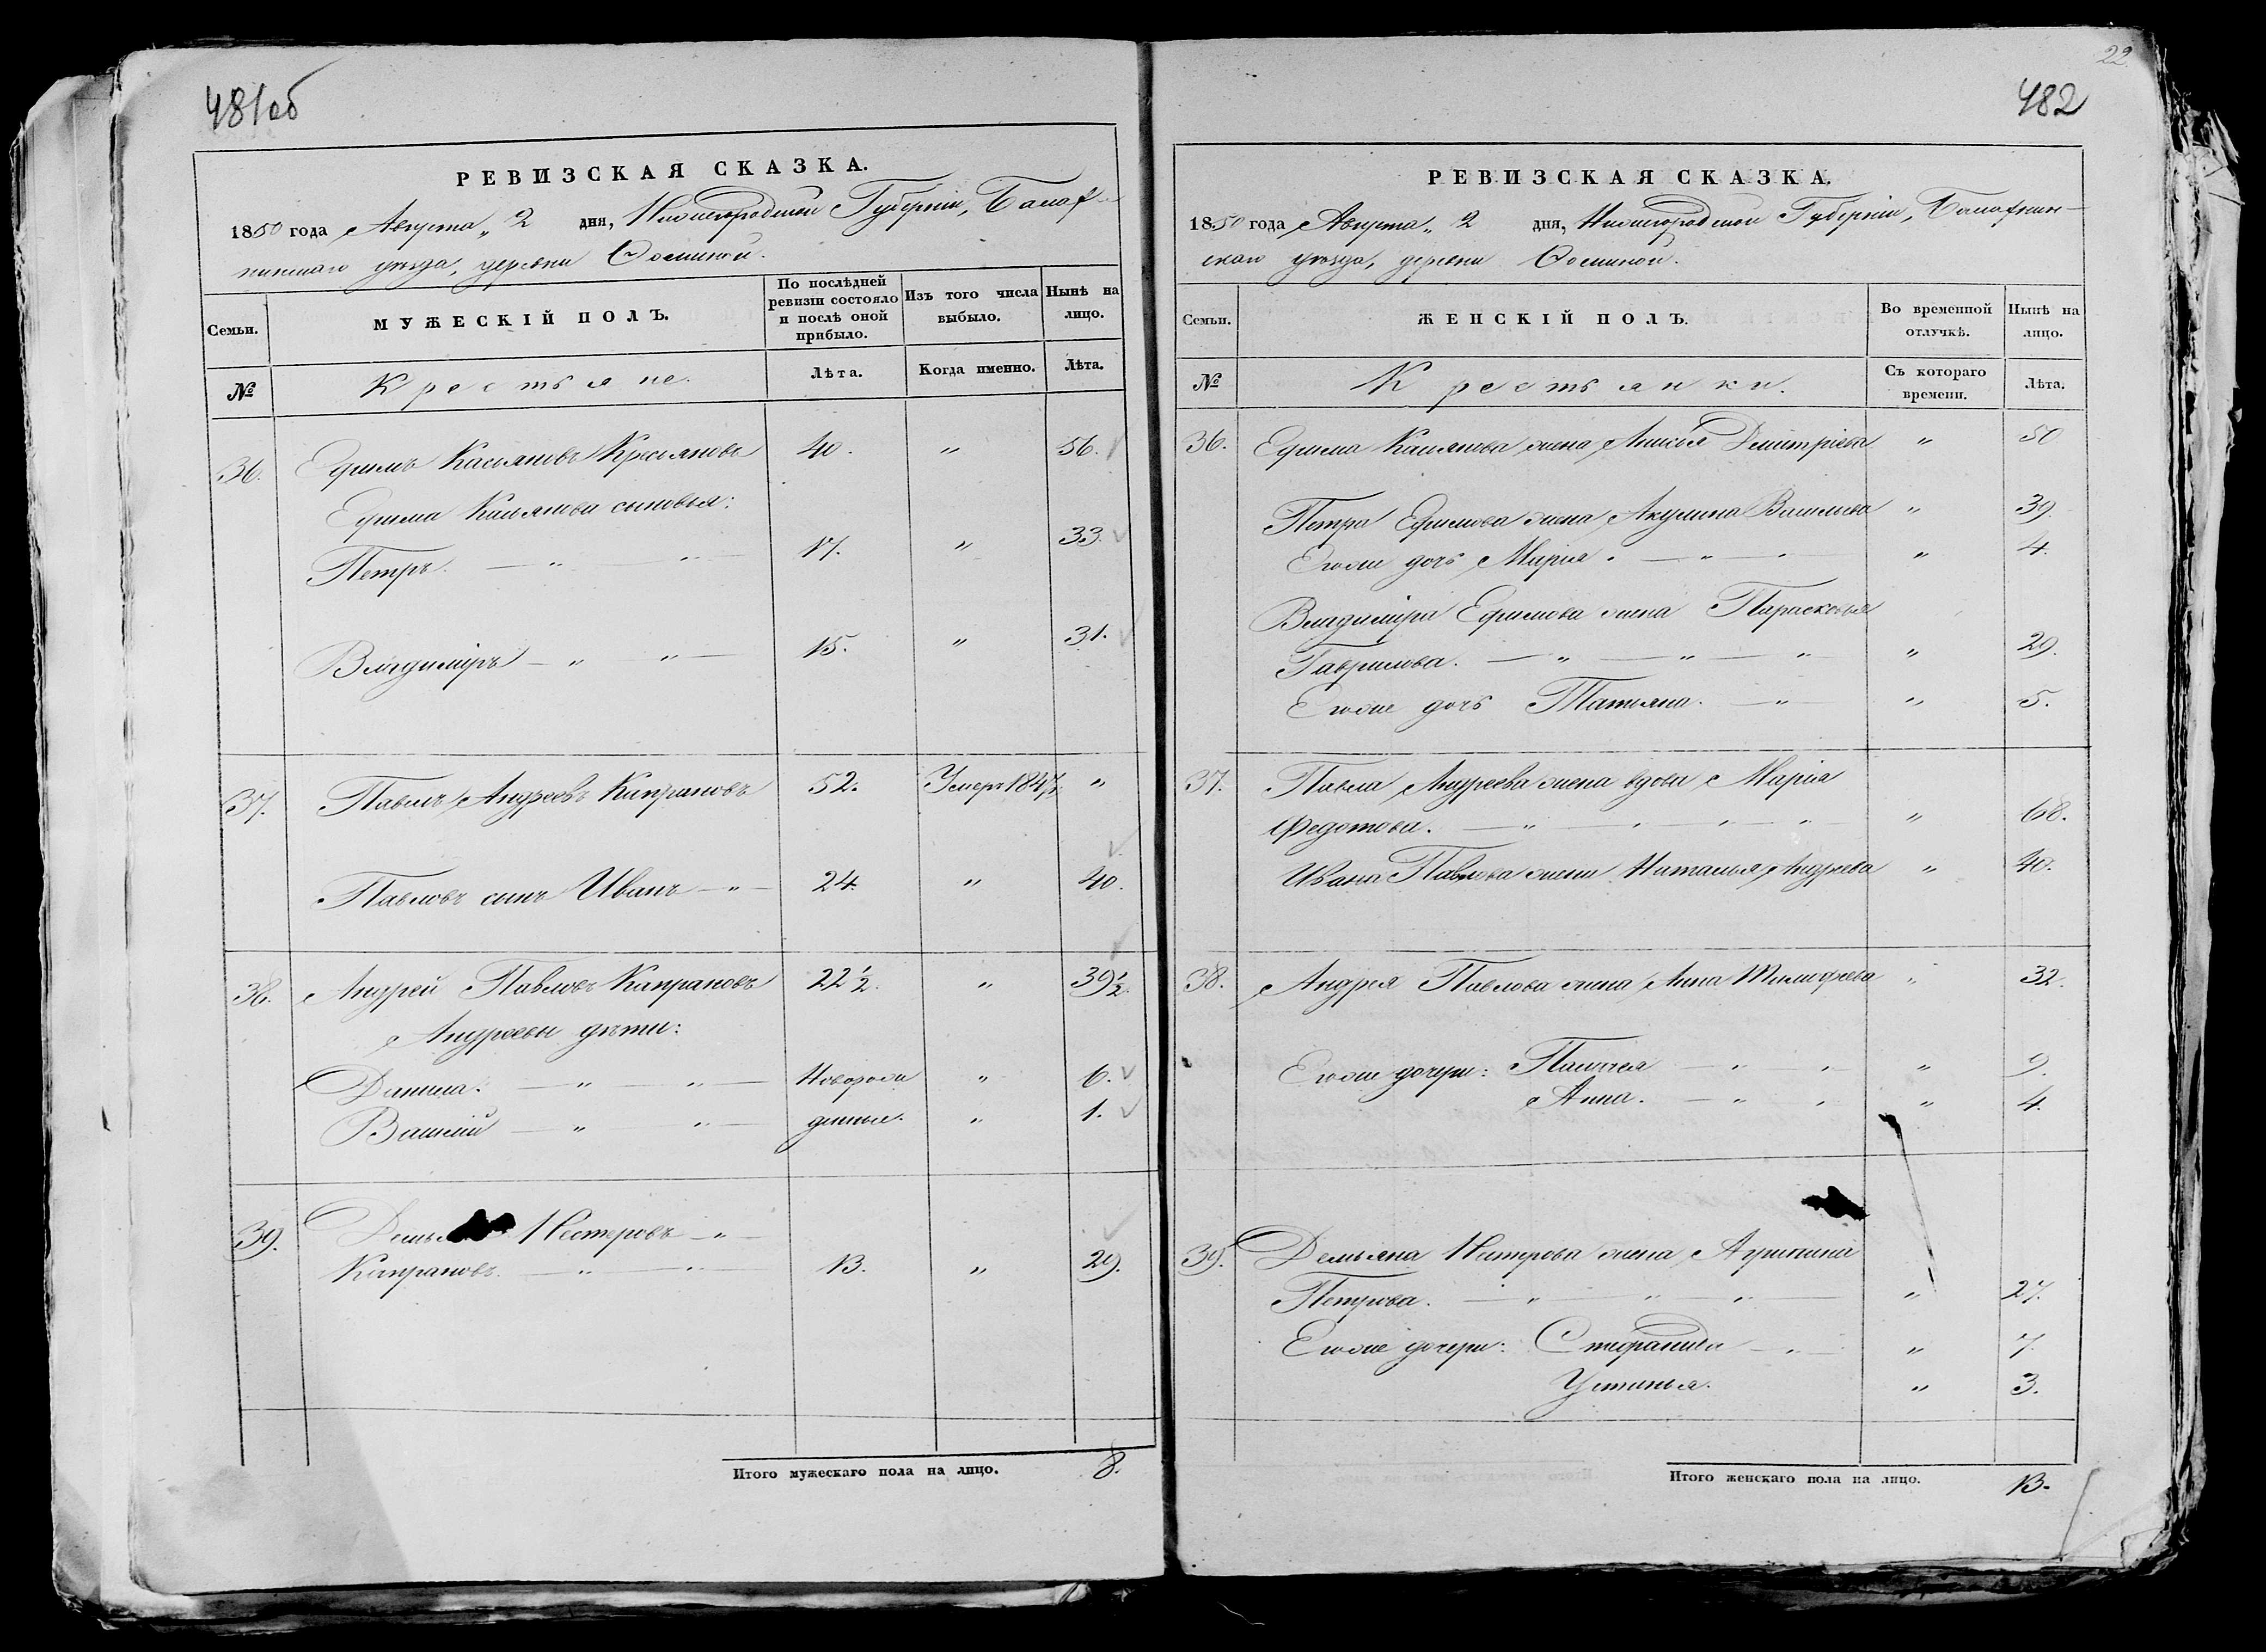 481об
РЕВИЗСКАЯ СКАЗКА.
1850 года Августа „ 2 дня, Нижегородской Губерніи, Балах-
нинскаго уѣзда, деревни
Семьи.
МУЖЕСКІЙ ПОЛЪ.
По послѣдней ревизіи состояло и послѣ оной прибыло.
Изъ того числа выбыло.
Нынѣ на лицо.
№
Крестьяне.
Лѣта.
Когда именно.
Лѣта.
36. Ефимъ Касьяновъ 40. „ 56.
Ефима Касьянова сыновья:
Петръ. — „ „ — 17. „ 33.
Владиміръ — „ „ — 15. „ 31.
37. Павелъ Андреевъ Капрановъ 52. Умеръ 1847 „
Павловъ сынъ Иванъ — „ — 24 „ 40.
38. Андрей Павловъ Капрановъ 22 ½. „ 39½.
Андреевы дѣти:
Данила. — „ — „ — Новорож „ 6.
Василій — „ „ — денные. „ 1.
39. Нестеровъ — „ —
Капрановъ. — „ — „ — 13. „ 29.
Итого мужескаго пола на лицо. 8.
22
482
РЕВИЗСКАЯ СКАЗКА.
1850 года Августа „ 2 дня, Нижегородской Губерніи, Балахнин-
скаго уѣзда, деревни
Семьи.
ЖЕНСКІЙ ПОЛЪ.
Во временной отлучкѣ.
Нынѣ на лицо.
№
Крестьянки.
Съ котораго времени.
Лѣта.
36. Ефима Касьянова жена Анисья Дмитріева „ 50
Петра Ефимова жена Акулина Васильева „ 39.
Егоже дочь Марія. — „ — „ 4.
Владиміра Ефимова жена Парасковья
Гаврилова. — „ — „ — „ „ 29.
Егоже дочь Татьяна. — „ „ 5.
37. Павла Андреева жена вдова Марія
Федотова. — „ — „ — „ — „ — „ 68.
Ивана Павлова жена Наталья Андреева „ 40.
38. Андрея Павлова жена Анна Тимофеева „ 32.
Егоже дочери: — „ „ „ 9.
Анна. — „ „ „ 4.
39. Демьяна Нестерова жена Агрипина
Петрова. — „ — „ — „ — „ 27.
Егоже дочери: Стефанида — „ — „ 7.
Устинья. „ 3.
Итого женскаго пола на лицо. 13.